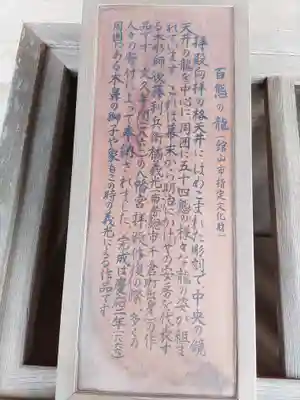 百態の龍(館山市指定文化財)
拝殿向拝の格天井にはめこまれた彫刻で中央の鏡
天井の龍を中心に周囲に五十四態の様々な龍の姿が組ま
れています これは幕末から明治にかけての安房を代表す
る木彫師後藤利兵衛橘義光(南房総市千倉町出身)の作
品です 文久年間に八幡宮拝殿修復の際 多くの
人々の寄付によって奉納されました(完成は慶応二年
周囲にある木鼻の獅子や象もこの時の義光による作品です